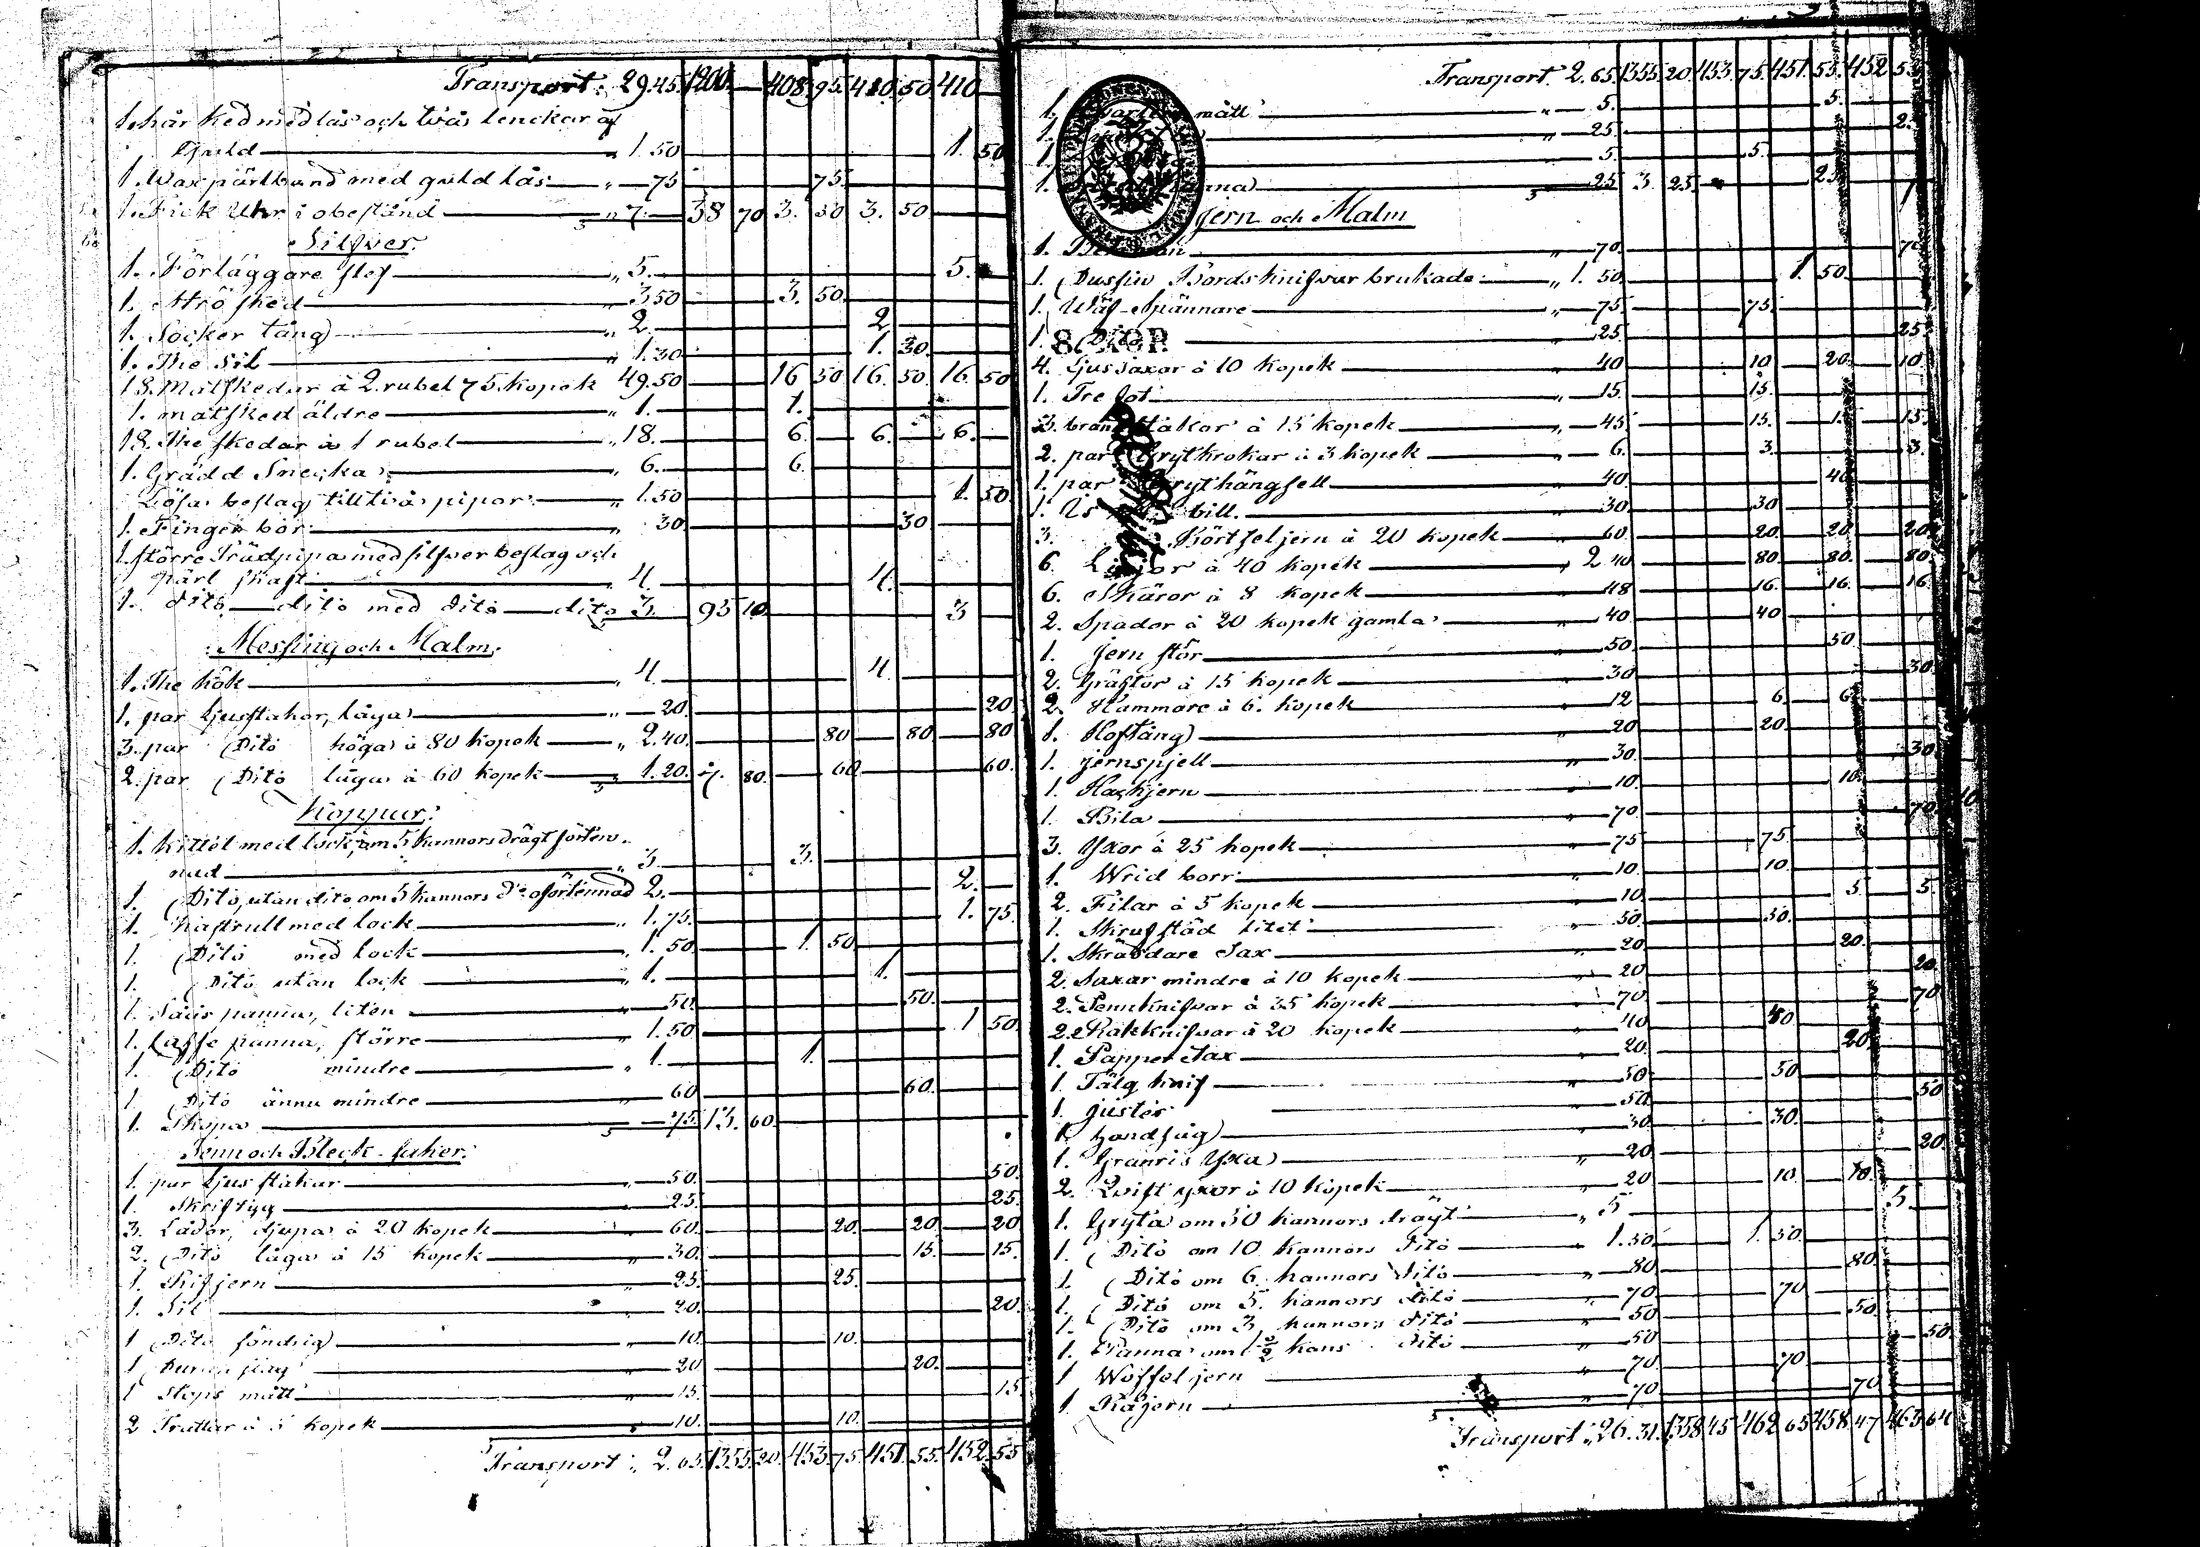 Transport: 29.45. 1200. — 408. 95. 410. 50. 410 —
1. hår ked med lås och tvås lenckar af
Guld — " 1. 50 1. 50
1. Wax pärlband med guld lås — " — 75 75.
1. Fick Uhr i obestånd — " 7. — 38 70 3. 50 3. 50
Silfver.
1. Förläggare slef — " 5. — 5.
1. Strö sked — " 3 50 3. 50.
1. Socker tång — " 2. 2
1. The Sil — " 1. 30 1. 30.
18. Matskedar à 2. rubel 75. kopek 49. 50 16 50 16. 50. 16. 50
1. matsked äldre — " 1. — 1.
18. The skedar à 1 rubel — " 18. — 6. 6. 6.
1. Grädd Snecka — " 6. — 6.
Lösa beslag till två pipor — " 1. 50 1. 50
1. Fingerbor — " 30 30
1. större Trädpipa med silfver beslag och
pärl skaft — " 4. 4.
1. dito — dito med dito — dito 3. 95 10. 3
Messing och Malm.
1. The kök — " 4 4.
1. par Ljusstakar, låga — " — 20. 20.
3. par Dito höga à 80 kopek — " 2. 40. 80 80 80
2. par Dito låga à 60 kopek — 1. 20. 7. 80. 60 60.
Koppar.
1. Kittel med lock, om 5 kannors drägt förten-
nad — " 3. 3.
1. Dito, utan dito om 5 kannors d:o oförtennad 2. 2.
1. Kastrull med lock — " 1. 75. 1. 75.
1. Dito med lock — " 1. 50 1. 50
1. Dito utan lock — " 1. 1.
1. panna, liten — " — 50. 50.
1. Caffe panna, större — " 1. 50 1 50.
1. Dito mindre — " 1. 1.
1. Dito ännu mindre — " — 60 60.
1. Skopa — — 75. 13. 60.
Tenn och Bleck-saker.
1. par Ljusstakar — " — 50. 50.
1. Skriftyg — " — 25. 25.
3. Lådor, djupa à 20 kopek — " — 60. 20. 20. 20
2. Dito låga à 15 kopek — " — 30. 15. 15.
1. Rifjern — " — 25. 25.
1. Sil — " — 20. 20.
1 Dito söndrig — " — 10. 10.
1 — " — 20 20.
1 Stops mått — " — 15. 15
2 Trattar à 5 kopek — " — 10. 10.
Transport: 2. 65. 1355. 20. 453. 75. 451. 55. 452. 55
Transport: 2. 65. 1355. 20. 453. 75. 451. 55. 452 55
1. mått — " — 5. 5.
1. — " — 25. 2
1. — 5. 5.
1. — 25 3. 25. 25
Jern och Malm
1. — " — 70. 70
1. Dussin Bordsknifvar brukade — " 1. 50. 1. 50.
1. Wäf Spännare — " — 75. 75.
8. KOP.
1. Dito — 25. 25
4. Ljussaxar à 10 kopek — " — 40 10 20. 10.
1. Tre fot — " — 15. 15.
3. brandstakar à 15 kopek — " — 45. 15. 15. 15.
2. par Grytkrokar à 3 kopek — " — 6. 3. 3.
1. par Grythängsell — " — 40. 40
1. Is bill. — " — 30. 30
3. jern à 20 kopek — " — 60 20. 20. 20.
6. Liar à 40 kopek — " 2 40 80 80. 80.
6. Skäror à 8 kopek — " — 48 16. 16. 16.
2. Spador à 20 kopek gamla — " — 40 40
1. Jern stör — " — 50. 50
2. Gräftor à 15 kopek — " — 30 30.
2. Hammare à 6. kopek — " — 12 6. 6.
1. Hoftång — " — 20 20.
1. jernspjell — " — 30. 30.
1. Hackjern — " — 10. 10.
1. Bila — " — 70. 70.
3. Yxor à 25 kopek — " — 75 75
1. Wrid borr — " — 10. 10.
2. Filar à 5 kopek — " — 10. 5. 5.
1. Skrufstäd litet — " — 50. 50.
1. Skräddare Sax — " — 20. 20.
2. Saxar mindre à 10 kopek — " — 20 20.
2. Pennknifvar à 35 kopek — " — 70. 70
2. Rakknifvar à 20 kopek — " — 40. 40
1. Papper Sax — " — 20. 20.
1. Tälg knif — " — 50. 50
1. — 50. 50
1. handsåg — " — 30. 30.
1. Granris Yxa — " — 20. 20.
2. Qvist yxor à 10 kopek — " — 20 10. 10.
1. Gryta om 30 kannors drägt — " 5 5.
1. Dito om 10 kannors dito — " 1. 50. 1. 50.
1. Dito om 6. kannors dito — " — 80. 80.
1. Dito om 5. kannors dito — " — 70. 70
1. Dito om 3. kannors dito — " — 50 50.
1. Panna om kans dito — " — 50 50.
1 Woffel jern — " — 70. 70
1 Råjern — — 70. 70.
Transport: 26. 31. 1358. 45 462. 65 458. 47 463. 64